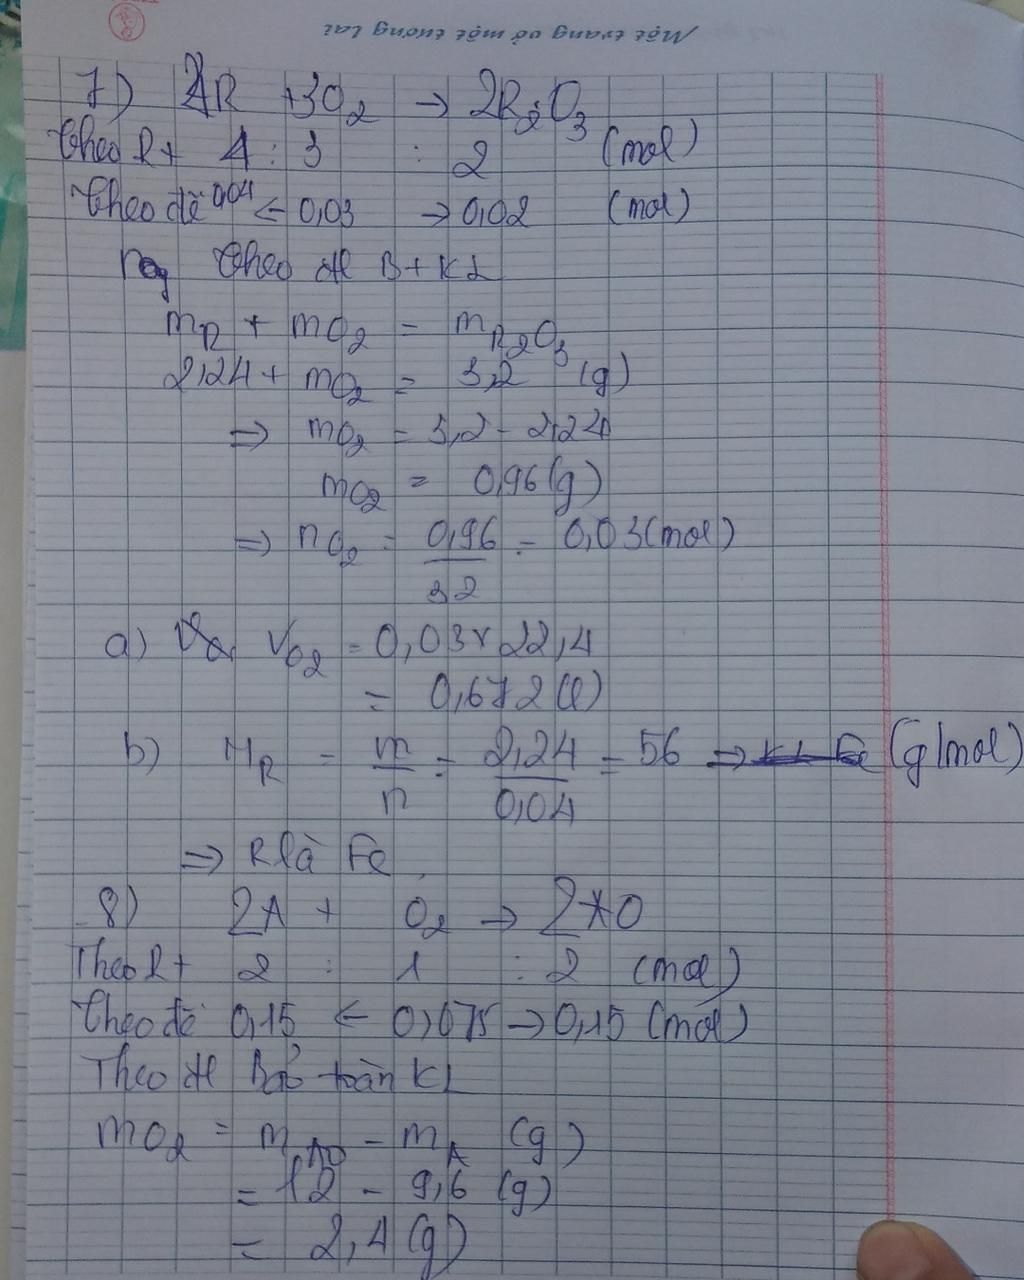 Một trang vở một tương lai
7) 4R + 3O₂ → 2R₂O₃
Theo Pt 4 : 3 : 2 (mol)
Theo đề 0,04 ← 0,03 → 0,02 (mol)
Theo đl BTKL
mR + mO₂ = mR₂O₃
2,24 + mO₂ = 3,2 (g)
⇒ mO₂ = 3,2 - 2,24
mO₂ = 0,96 (g)
⇒ nO₂ = 0,96/32 = 0,03 (mol)
a) VO₂ = 0,03 x 22,4
= 0,672 (l)
b) MR = m/n = 2,24/0,04 = 56 (g/mol)
⇒ R là Fe
8) 2A + O₂ → 2AO
Theo Pt 2 : 1 : 2 (mol)
Theo đề 0,15 ← 0,075 → 0,15 (mol)
Theo đl Bảo toàn KL
mO₂ = mAO - mA (g)
= 12 - 9,6 (g)
= 2,4 (g)